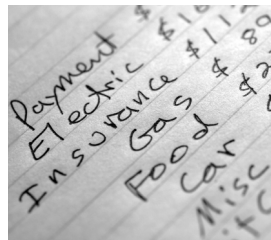 Payment $
Electric $11
Insurance $ 80
Gas $
Food
Car
Misc